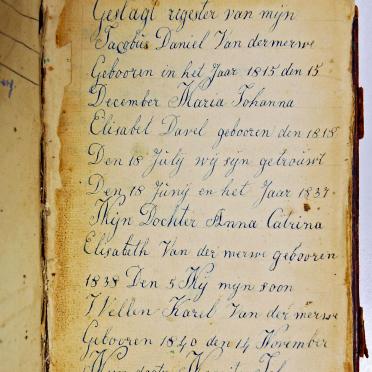 Geslagt rigester van mijn
Jacobus Daniel Van dermerwe
Gebooren in het Jaar 1815 den 15
December Maria Johanna
Elisabet Davel gebooren den 1818
Den 18 Julij wij sijn getrouwt
Den 18 Junij en het Jaar 1837
Mijn Dochter Anna Catrina
Elisabeth Van der merwe gebooren
1838 Den 5 Mij mijn soon
Willem Karel Van der merwe
Gebooren 1840 den 14 November
Mijn